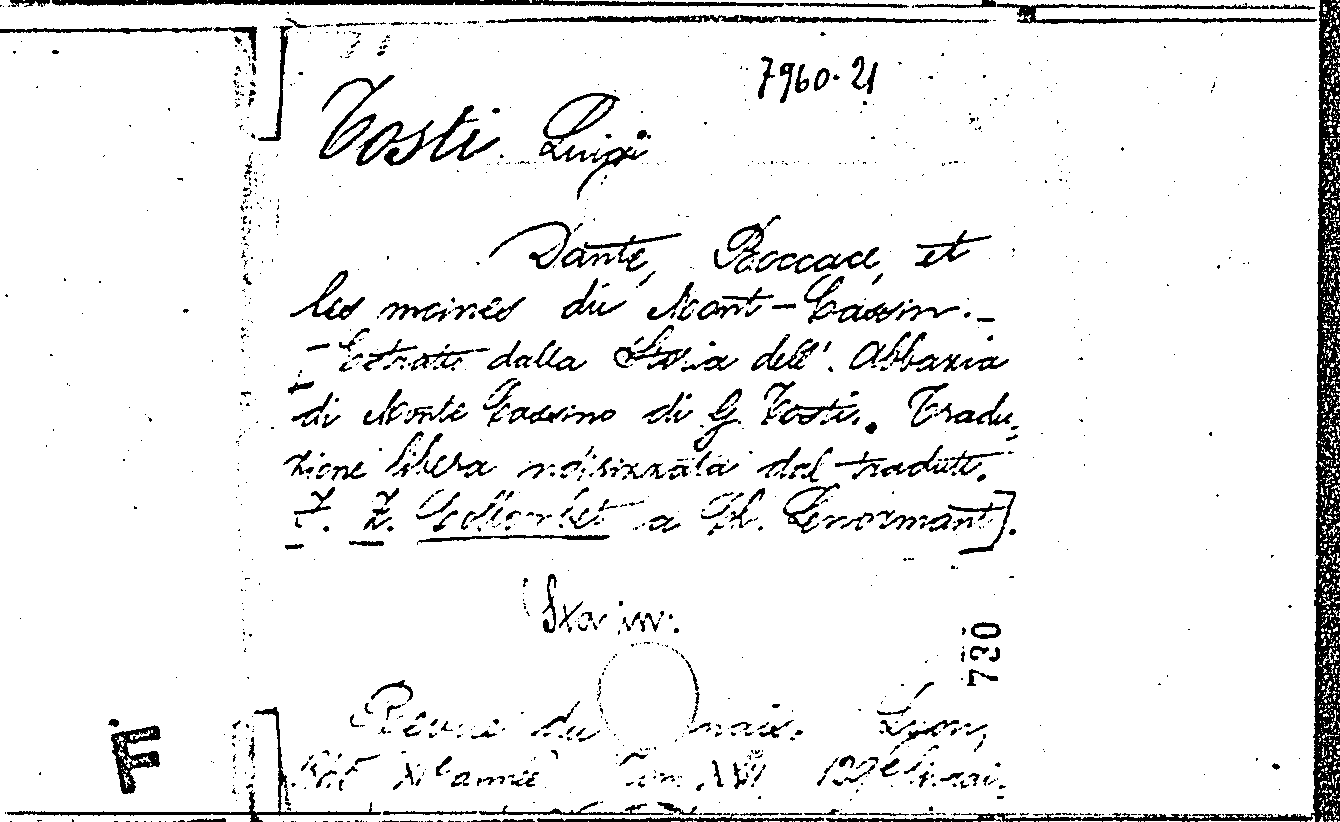 7960.21
Tosti Luigi
Dante, Boccace, et
les moines du Mont-Cassin.-
[Estratto dalla Storia dell'. Abbazia
di Monte Cassino di G. Tosti. Tradu-
zione libera indirizzata dal tradutt.
F. Z. Collombet a Ch. Lenormant].
Sta in:
730
Revue du nais. Lyon,
XIe année Tom. XXI 122e livrai-
F